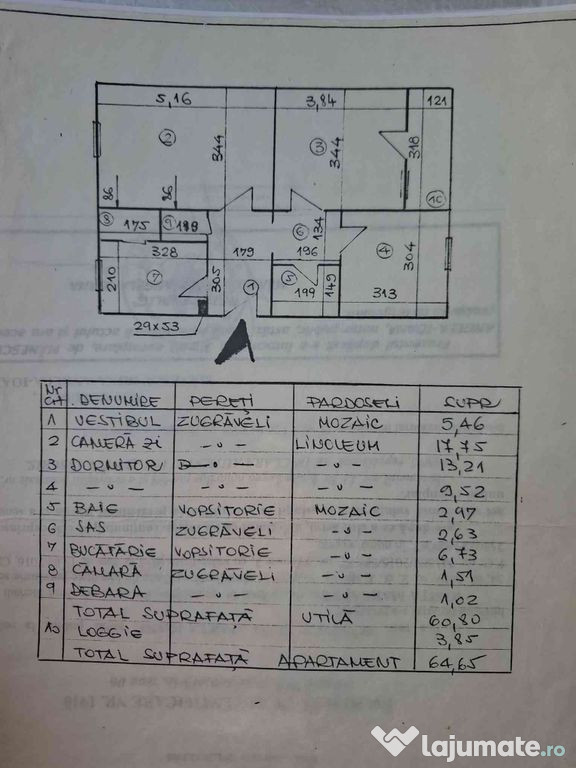 5,16 3,84 121
2 3 344 344 318
86 86 10
8 175 9 118 6 134
328 179 196 4 304
210 7 305 1 5 199 149 313
29x53
Nr crt DENUMIRE PEREȚI PARDOSELI SUPR
1 VESTIBUL ZUGRĂVELI MOZAIC 5,46
2 CAMERĂ ZI -"- LINOLEUM 17,75
3 DORMITOR -"- -"- 13,21
4 -"- -"- -"- 9,52
5 BAIE VOPSITORIE MOZAIC 2,97
6 SAS ZUGRĂVELI -"- 2,63
7 BUCĂTĂRIE VOPSITORIE -"- 6,73
8 CĂMARĂ ZUGRĂVELI -"- 1,51
9 DEBARA -"- -"- 1,02
TOTAL SUPRAFAȚĂ UTILĂ 60,80
10 LOGGIE 3,85
TOTAL SUPRAFAȚĂ APARTAMENT 64,65
lajumate.ro